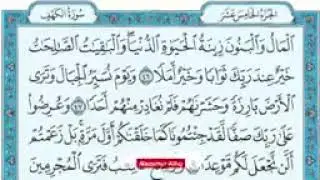 الجزء الخامس عشر
سورة الكهف
المال والبنون زينة الحيوة الدنيا والبقيت الصلحت
خير عند ربك ثوابا وخير أملا ٤٦ ويوم نسير الجبال وترى
الأرض بارزة وحشرنهم فلم نغادر منهم أحدا ٤٧ وعرضوا
على ربك صفا لقد جئتمونا كما خلقنكم أول مرة بل زعمتم
ألن نجعل لكم موعدا فترى المجرمين